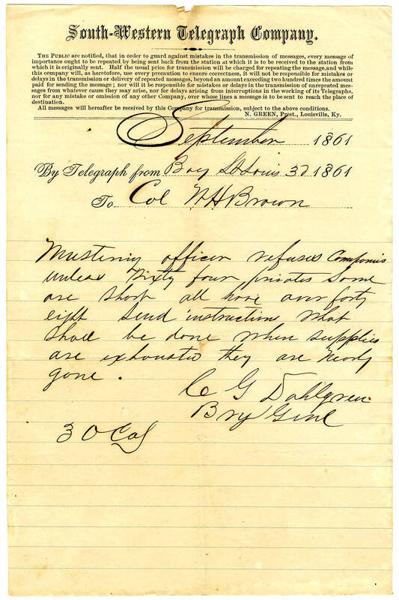 South-Western Telegraph Company.
THE PUBLIC are notified, that in order to guard against mistakes in the transmission of messages, every message of
importance ought to be repeated by being sent back from the station at which it is to be received to the station from
which it is originally sent. Half the usual price for transmission will be charged for repeating the message, and while
this company will, as heretofore, use every precaution to ensure correctness, it will not be responsible for mistakes or
delays in the transmission or delivery of repeated messages, beyond an amount exceeding two hundred times the amount
paid for sending the message; nor will it be responsible for mistakes or delays in the transmission of unrepeated messages
from whatever cause they may arise, nor for delays arising from interruptions in the working of its Telegraphs,
nor for any mistake or omission of any other Company, over whose lines a message is to be sent to reach the place of
destination.
All messages will hereafter be received by this Company for transmission, subject to the above conditions.
N. GREEN, Prest., Louisville, Ky.
September 1861
By Telegraph from Bay St Louis 1861
To Col W H Brown
Mustering officer refuses Companies
unless Sixty four privates Some
are Short all have over forty
eight Send instructions what
Shall be done when supplies
are exhausted they are nearly
gone.
C G Dahlgren
Brig Genl
30 Col